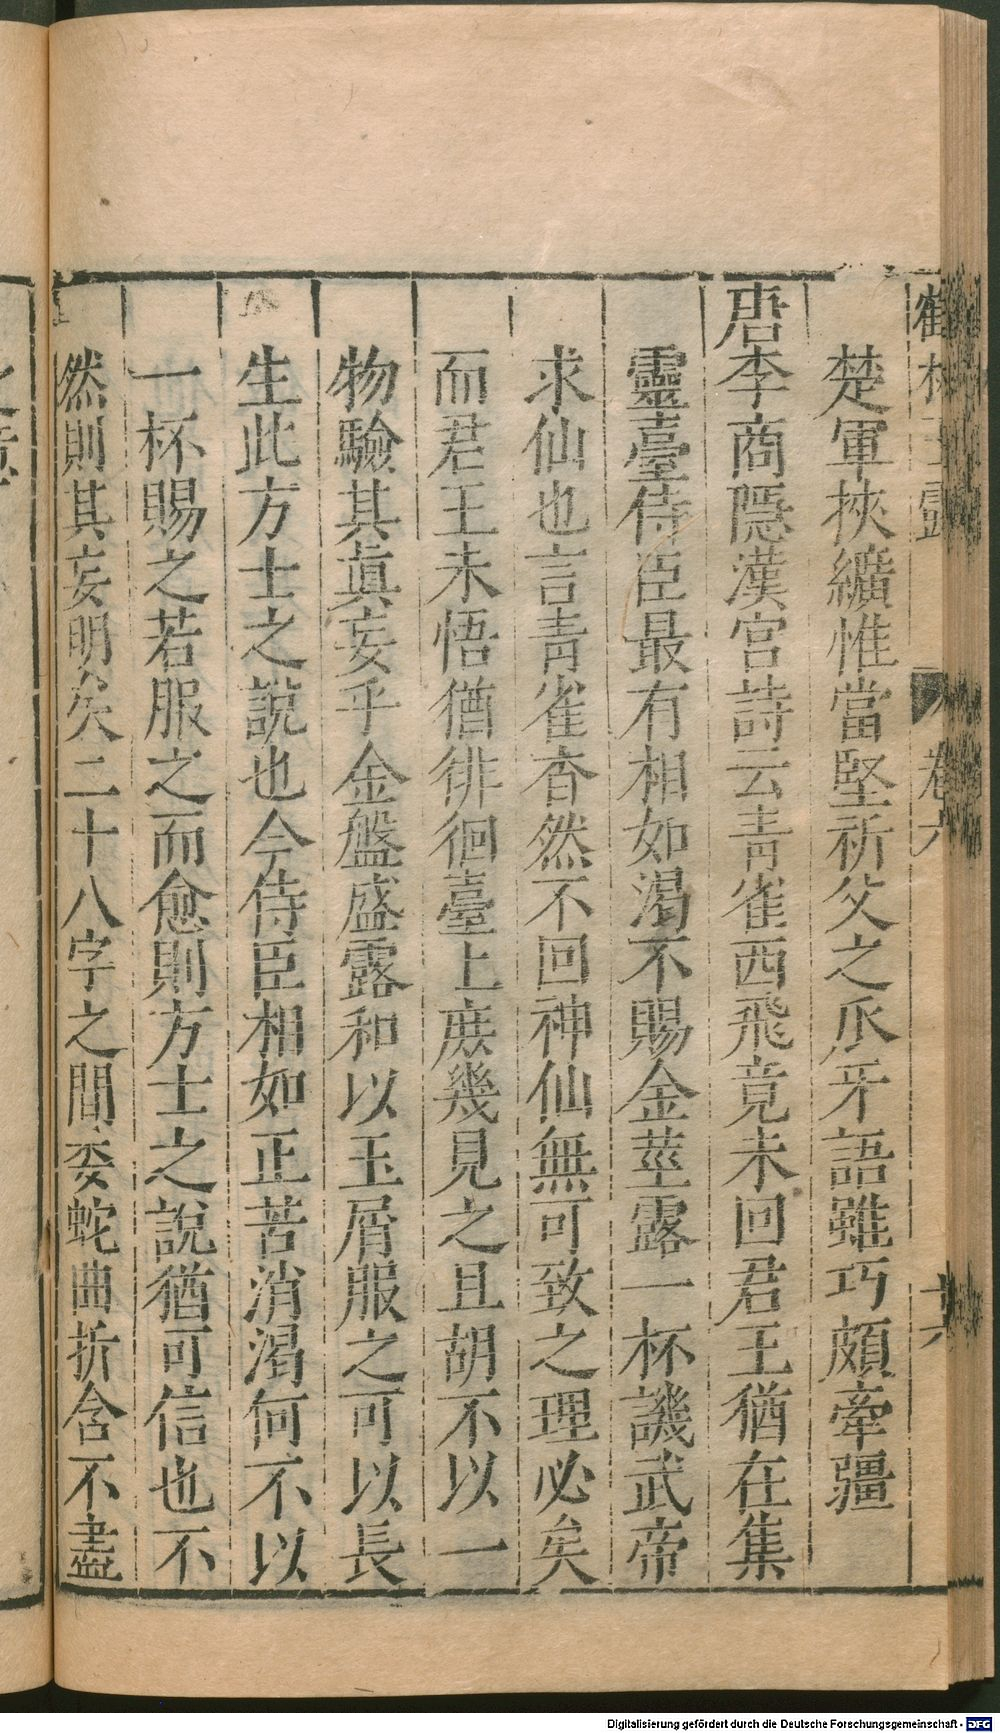 鶴林玉露 卷六 十六
楚軍挾纊惟當堅祈父之爪牙語雖巧頗牽疆
唐李商隱漢宮詩云青雀西飛竟未回君王猶在集
靈臺侍臣最有相如渴不賜金莖露一杯譏武帝
求仙也言青雀杳然不回神仙無可致之理必矣
而君王未悟猶徘徊臺上庶幾見之且胡不以一
物驗其眞妄乎金盤盛露和以玉屑服之可以長
生此方士之說也今侍臣相如正苦消渴何不以
一杯賜之若服之而愈則方士之說猶可信也不
然則其妄明矣二十八字之間委蛇曲折含不盡
Digitalisierung gefördert durch die Deutsche Forschungsgemeinschaft - DFG